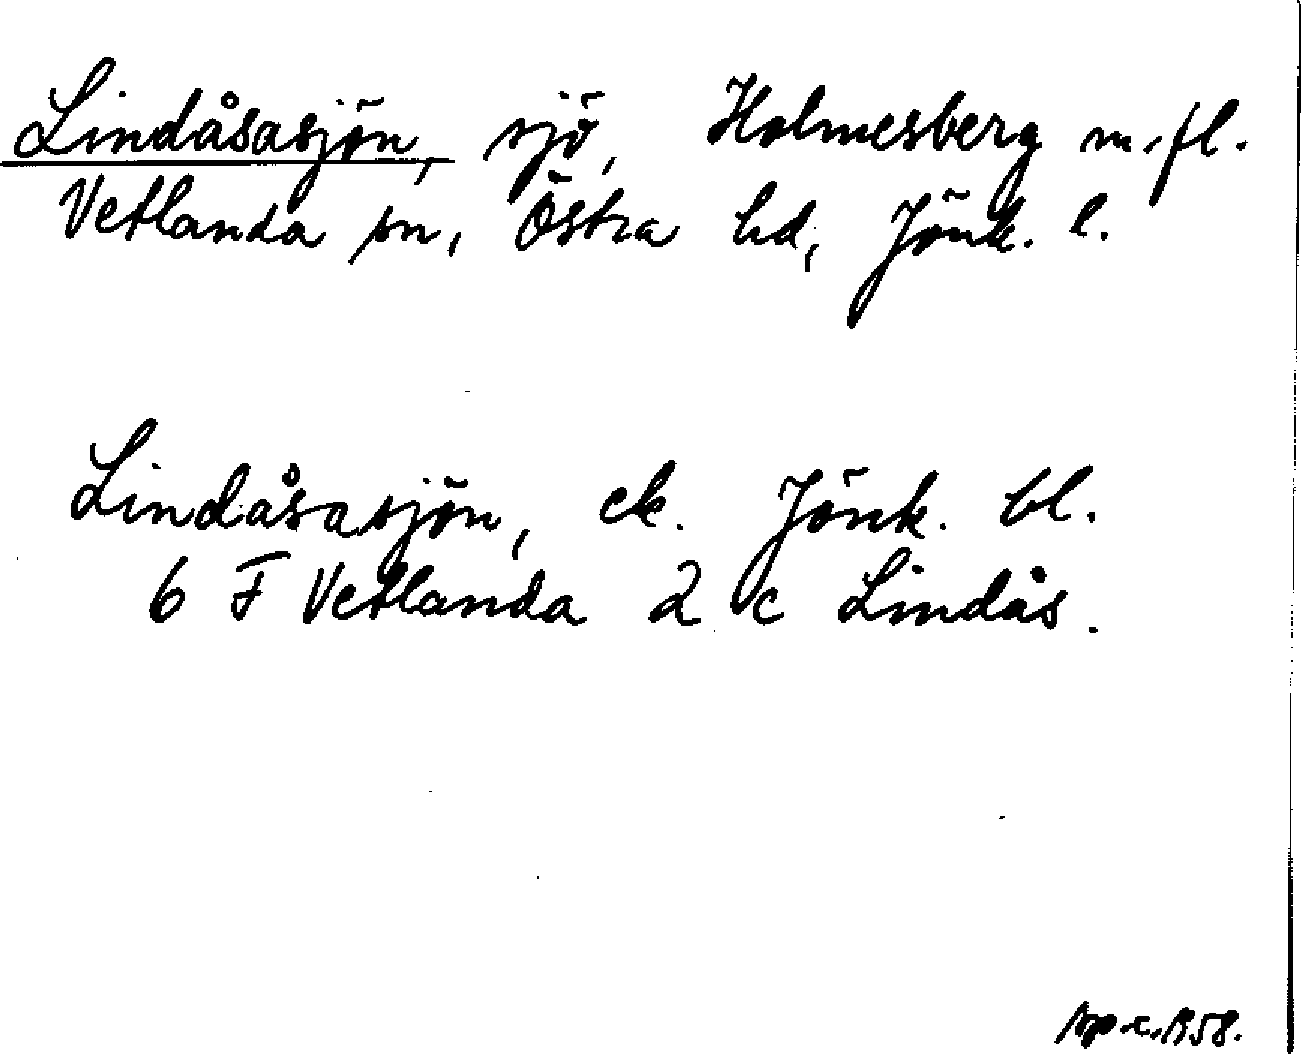 Lindåsasjön, sjö, Holmesberg m.fl.
Vetlanda sn, Östra hd, Jönk. l.
Lindåsasjön, ek. Jönk. bl.
6 F Vetlanda 2 c Lindås.
1958.